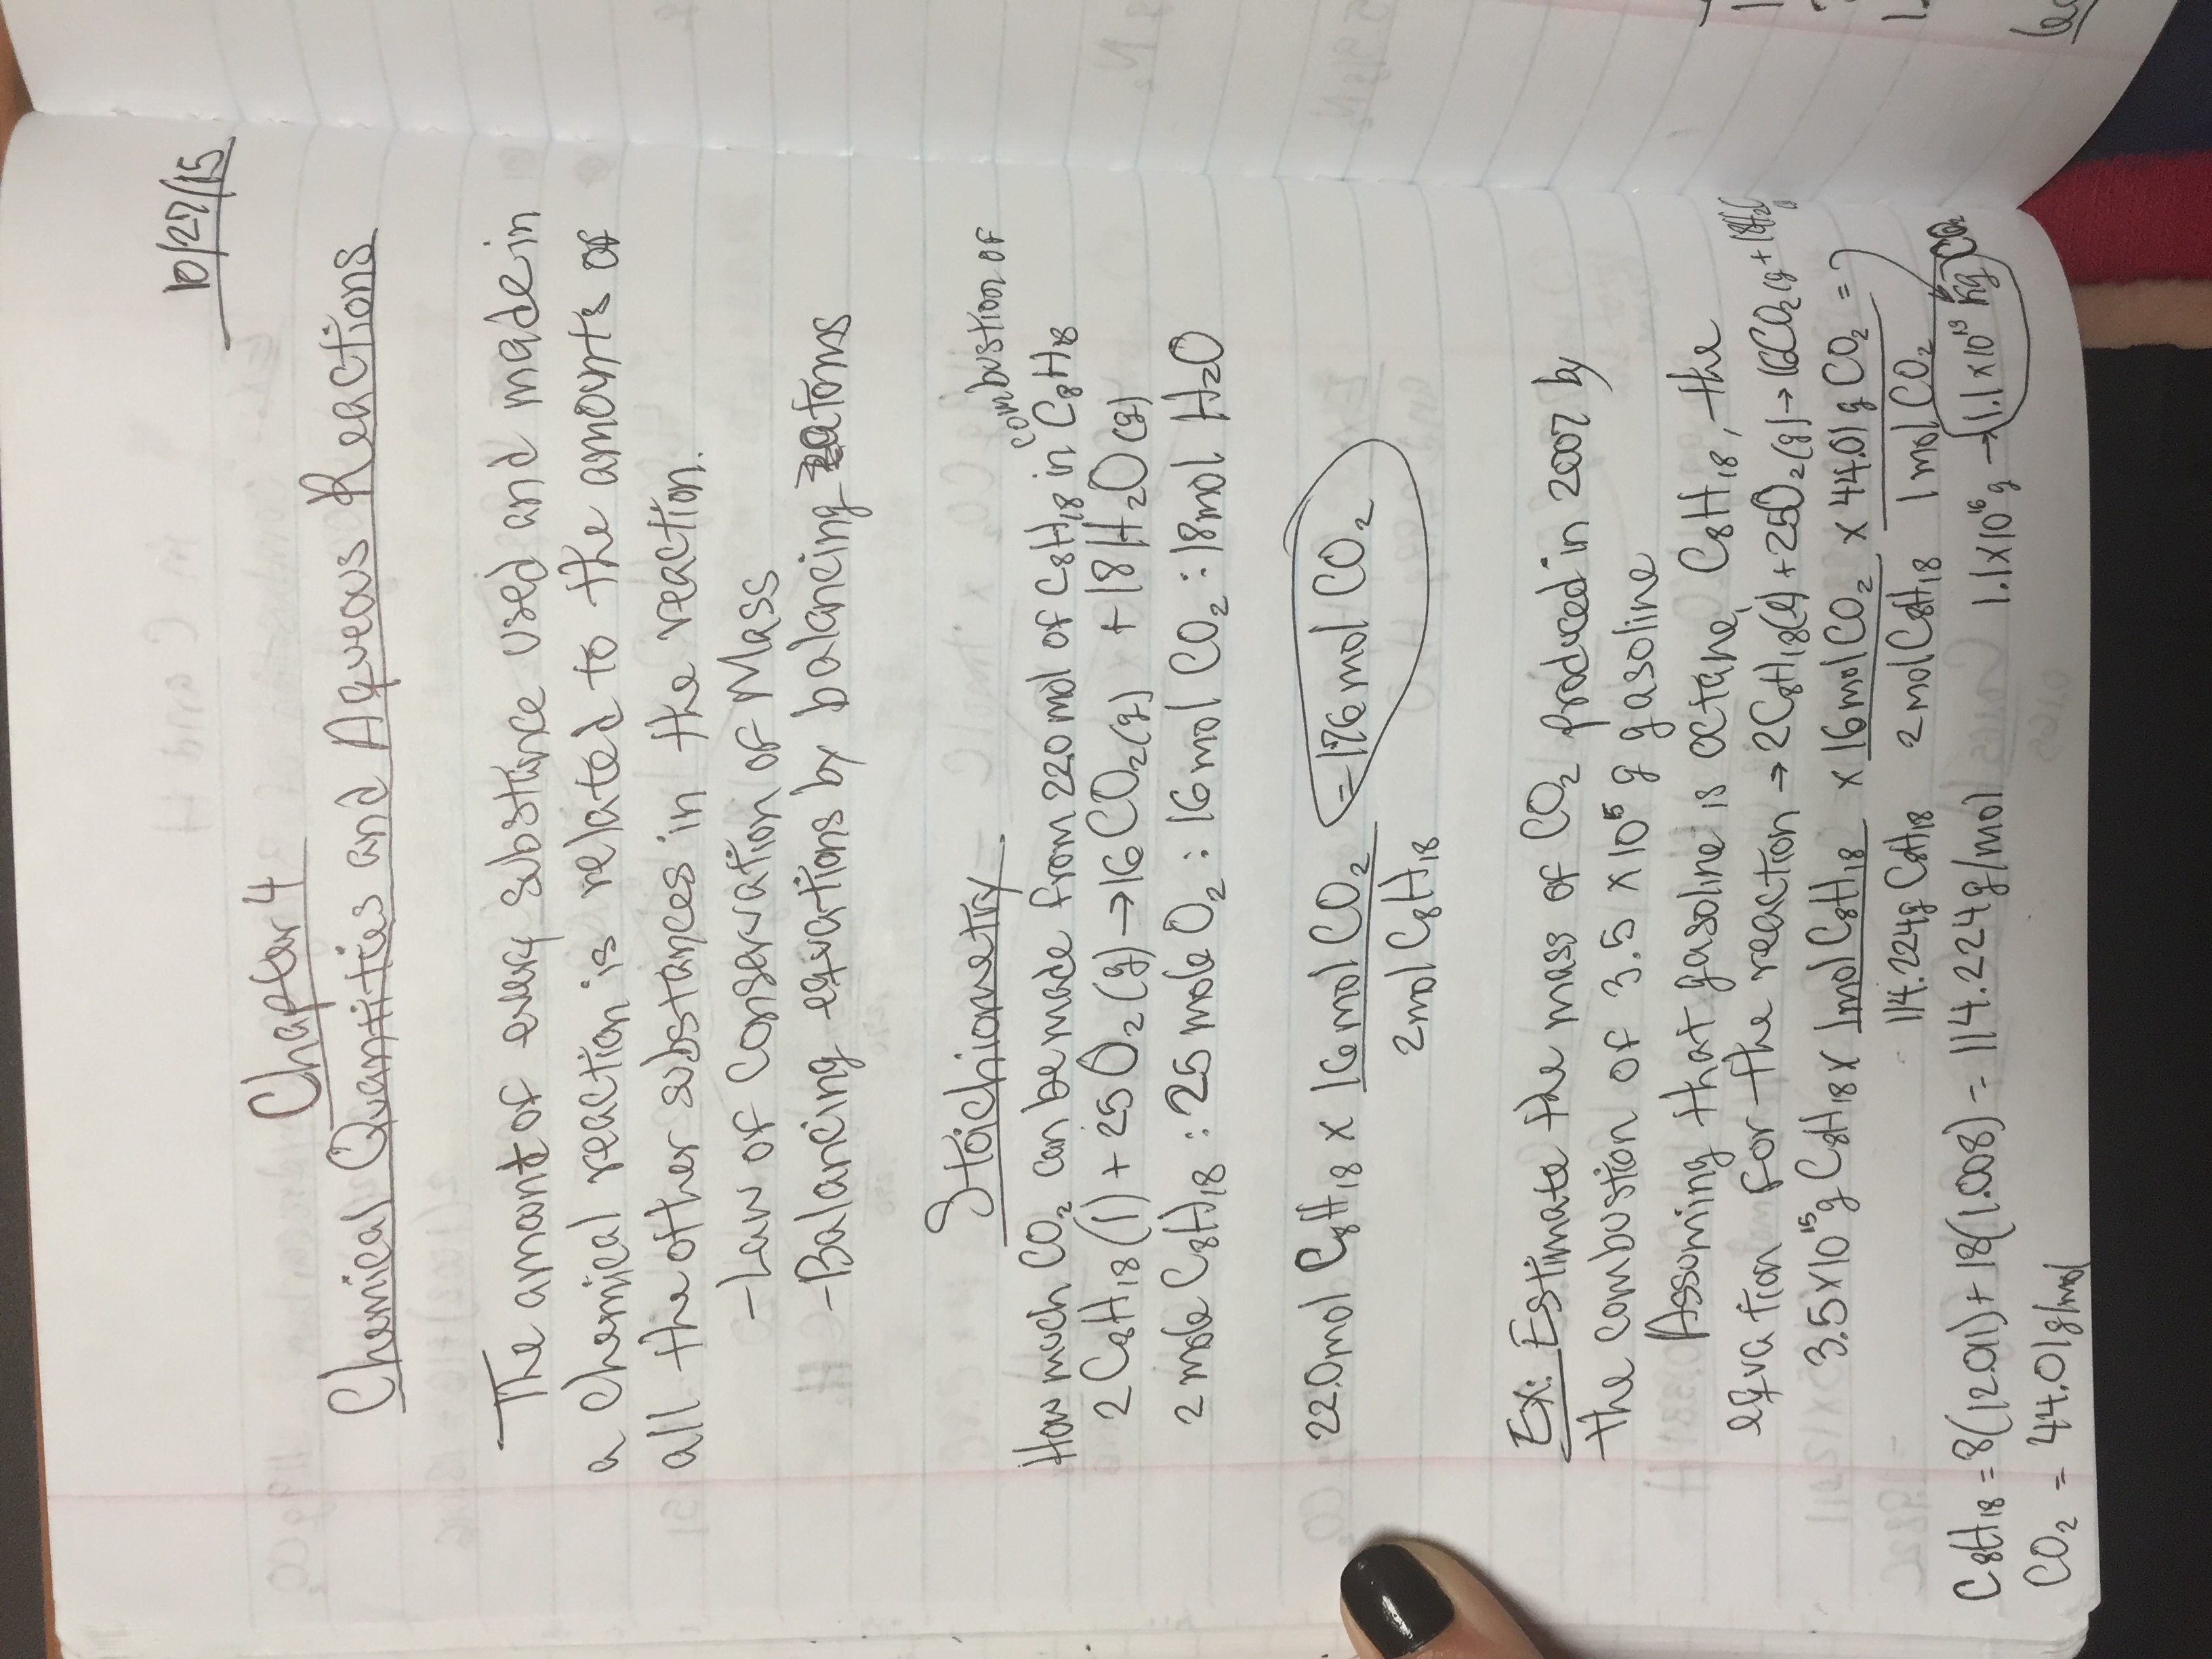 10/27/15
Chapter 4
Chemical Quantities and Aqueous Reactions
The amount of every substance used and made in
a chemical reaction is related to the amounts of
all the other substances in the reaction.
-Law of Conservation of Mass
-Balancing equations by balancing atoms
Stoichiometry
How much CO₂ can be made from 22.0 mol of C₈H₁₈ in combustion of C₈H₁₈
2 C₈H₁₈(l) + 25 O₂(g) → 16 CO₂(g) + 18 H₂O(g)
2 mole C₈H₁₈ : 25 mole O₂ : 16 mol CO₂ : 18 mol H₂O
22.0 mol C₈H₁₈ x 16 mol CO₂ = 176 mol CO₂
2 mol C₈H₁₈
Ex: Estimate the mass of CO₂ produced in 2007 by
the combustion of 3.5 x 10⁵ g gasoline
Assuming that gasoline is octane, C₈H₁₈, the
equation for the reaction → 2C₈H₁₈(l) + 25O₂(g) → 16CO₂(g + 18H₂O
3.5 x 10¹⁵ g C₈H₁₈ x 1mol C₈H₁₈ x 16 mol CO₂ x 44.01 g CO₂ = ?
114.224g C₈H₁₈ 2 mol C₈H₁₈ 1 mol CO₂
C₈H₁₈ = 8(12.01) + 18(1.008) = 114.224g/mol 1.1 x 10¹⁶ g → 1.1 x 10¹³ kg CO₂
CO₂ = 44.01g/mol